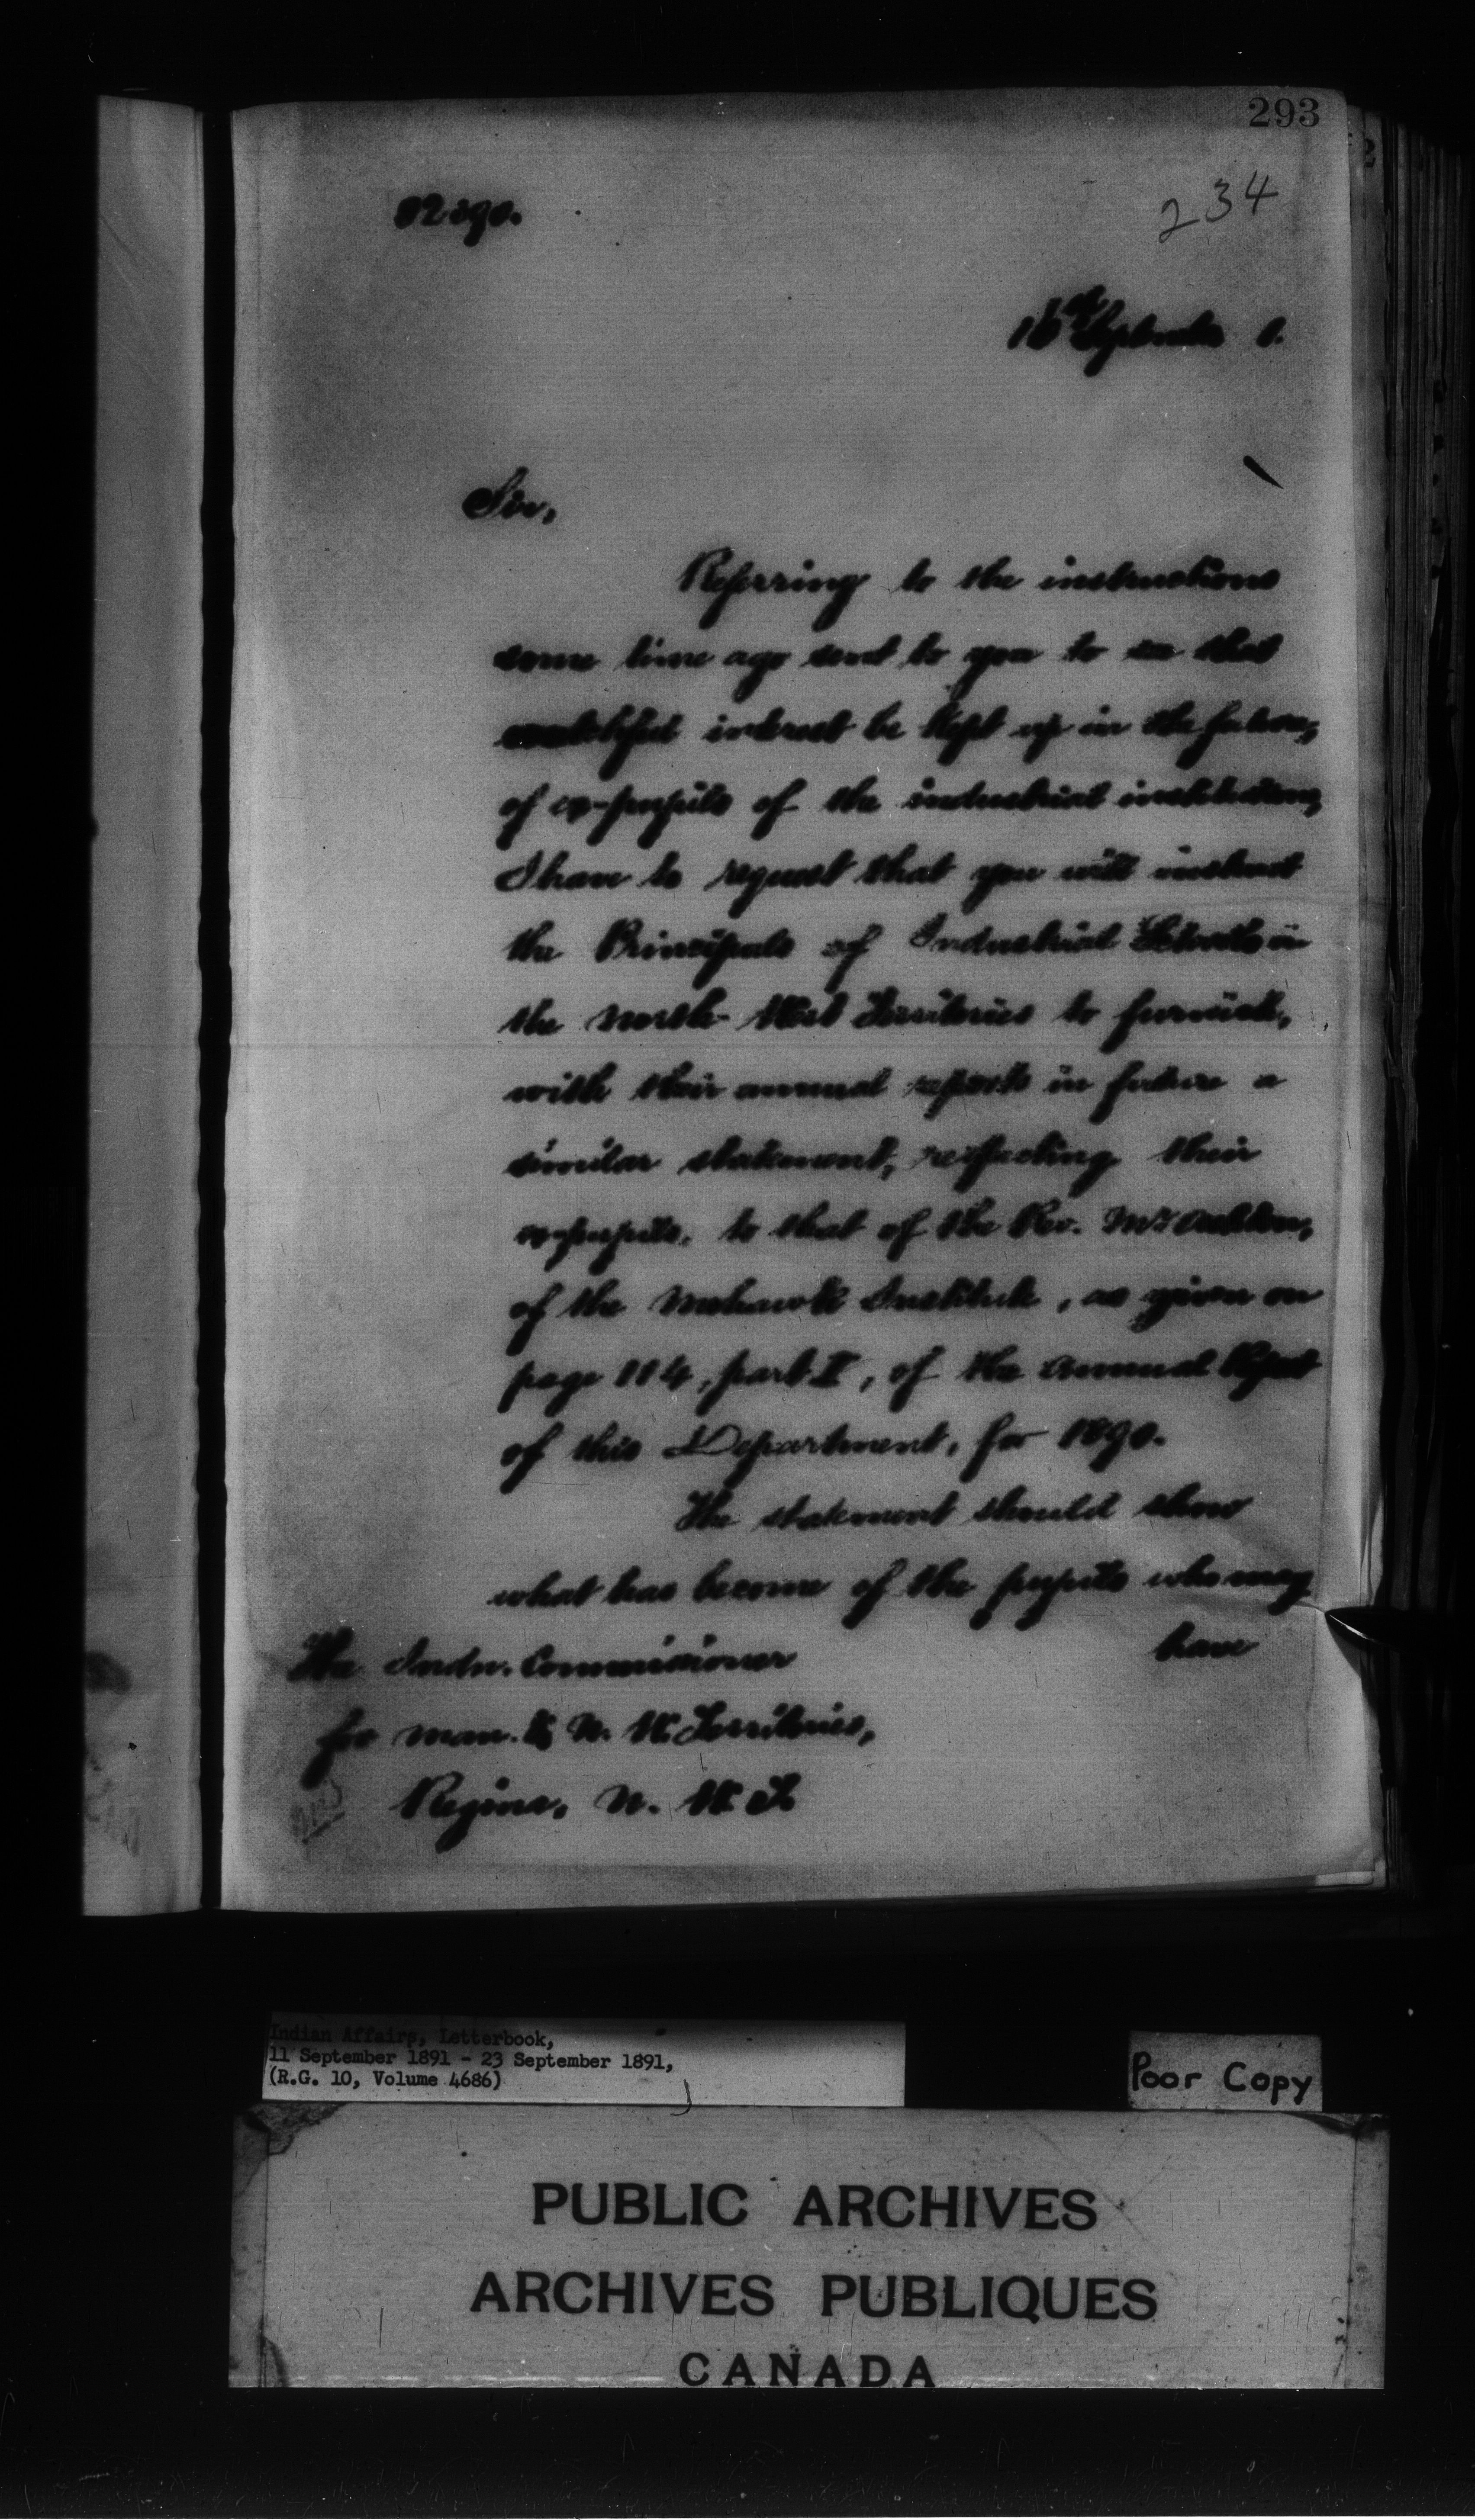 293
234
Sir,
Referring to the instructions
some time ago sent to you to see that
watchful interest be kept up in the future,
of ex-pupils of the industrial institutions,
I have to request that you will instruct
the Principals of Industrial Schools in
the North-West Territories to furnish,
with their annual reports in future a
similar statement, respecting their
ex-pupils, to that of the Rev. Mr Ashton,
of the Mohawk Institute, as given on
page 114, part I, of the Annual Report
of this Department, for 1890.
The statement should show
what has become of the pupils who may
have
The Indn. Commissioner
for Man. & N. W. Territories,
Regina, N. W. T.
Indian Affairs, Letterbook,
11 September 1891 - 23 September 1891,
(R.G. 10, Volume 4686)
Poor Copy
PUBLIC ARCHIVES
ARCHIVES PUBLIQUES
CANADA